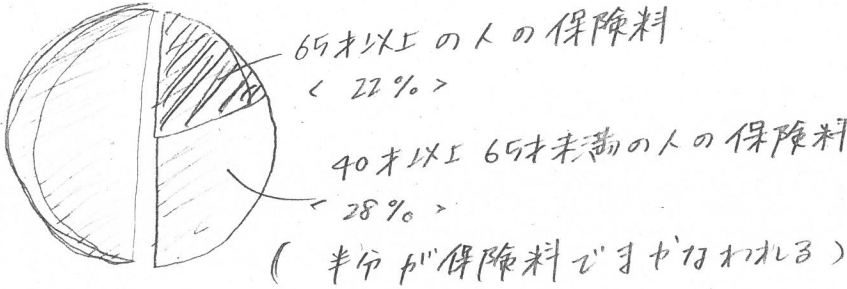 65才以上の人の保険料
< 22% >
40才以上65才未満の人の保険料
< 28% >
( 半分が保険料でまかなわれる )